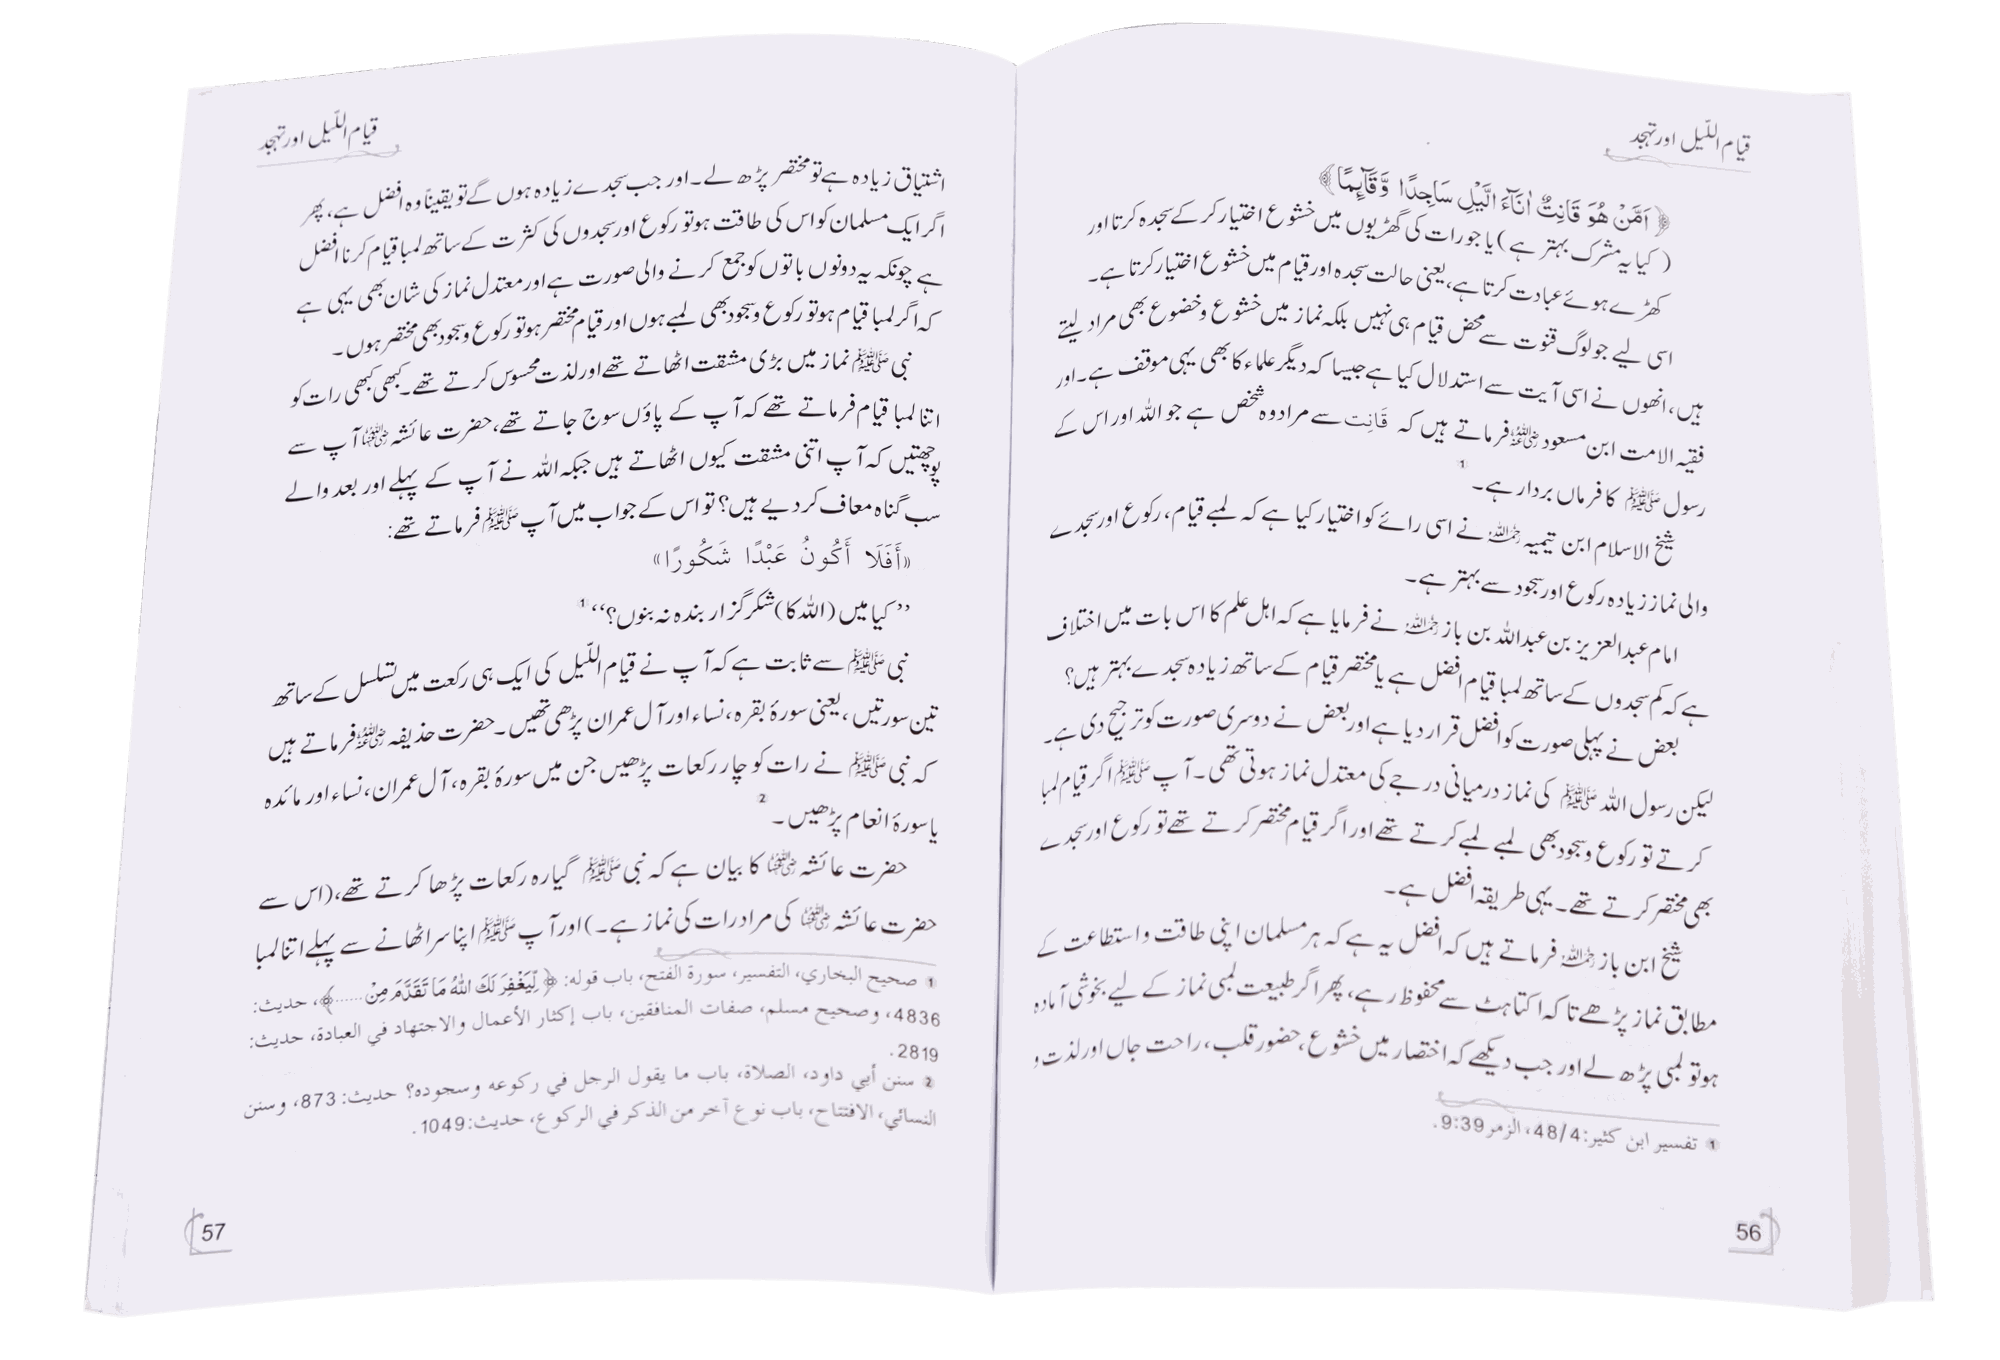 قیام اللّیل اور تہجد
﴿ اَمَّنْ هُوَ قَانِتٌ اٰنَآءَ الَّيْلِ سَاجِدًا وَّقَآىِٕمًا﴾
( کیا یہ مشرک بہتر ہے ) یا جو رات کی گھڑیوں میں خشوع اختیار کر کے سجدہ کرتا اور
کھڑے ہوئے عبادت کرتا ہے، یعنی حالت سجدہ اور قیام میں خشوع اختیار کرتا ہے۔
اسی لیے جو لوگ قنوت سے محض قیام ہی نہیں بلکہ نماز میں خشوع و خضوع بھی مراد لیتے
ہیں، انھوں نے اسی آیت سے استدلال کیا ہے جیسا کہ دیگر علماء کا بھی یہی موقف ہے۔ اور
فقیہ الامت ابن مسعود رضی اللہ عنہ فرماتے ہیں کہ قَانِت سے مراد وہ شخص ہے جو اللہ اور اس کے
رسول ﷺ کا فرماں بردار ہے۔ ①
شیخ الاسلام ابن تیمیہ رحمہ اللہ نے اسی رائے کو اختیار کیا ہے کہ لمبے قیام، رکوع اور سجدے
والی نماز زیادہ رکوع اور سجود سے بہتر ہے۔
امام عبدالعزیز بن عبداللہ بن باز رحمہ اللہ نے فرمایا ہے کہ اہل علم کا اس بات میں اختلاف
ہے کہ کم سجدوں کے ساتھ لمبا قیام افضل ہے یا مختصر قیام کے ساتھ زیادہ سجدے بہتر ہیں؟
بعض نے پہلی صورت کو افضل قرار دیا ہے اور بعض نے دوسری صورت کو ترجیح دی ہے۔
لیکن رسول اللہ ﷺ کی نماز درمیانی درجے کی معتدل نماز ہوتی تھی۔ آپ ﷺ اگر قیام لمبا
کرتے تو رکوع و سجود بھی لمبے لمبے کرتے تھے اور اگر قیام مختصر کرتے تھے تو رکوع اور سجدے
بھی مختصر کرتے تھے۔ یہی طریقہ افضل ہے۔
شیخ ابن باز رحمہ اللہ فرماتے ہیں کہ افضل یہ ہے کہ ہر مسلمان اپنی طاقت و استطاعت کے
مطابق نماز پڑھے تاکہ اکتاہٹ سے محفوظ رہے، پھر اگر طبیعت لمبی نماز کے لیے بخوشی آمادہ
ہو تو لمبی پڑھ لے اور جب دیکھے کہ اختصار میں خشوع، حضور قلب، راحت جاں اور لذت و
① تفسیر ابن کثیر: 48/4، الزمر 9:39.
56
قیام اللّیل اور تہجد
اشتیاق زیادہ ہے تو مختصر پڑھ لے۔ اور جب سجدے زیادہ ہوں گے تو یقیناً وہ افضل ہے، پھر
اگر ایک مسلمان کو اس کی طاقت ہو تو رکوع اور سجدوں کی کثرت کے ساتھ لمبا قیام کرنا افضل
ہے چونکہ یہ دونوں باتوں کو جمع کرنے والی صورت ہے اور معتدل نماز کی شان بھی یہی ہے
کہ اگر لمبا قیام ہو تو رکوع و سجود بھی لمبے ہوں اور قیام مختصر ہو تو رکوع و سجود بھی مختصر ہوں۔
نبی ﷺ نماز میں بڑی مشقت اٹھاتے تھے اور لذت محسوس کرتے تھے۔ کبھی کبھی رات کو
اتنا لمبا قیام فرماتے تھے کہ آپ کے پاؤں سوج جاتے تھے، حضرت عائشہ رضی اللہ عنہا آپ سے
پوچھتیں کہ آپ اتنی مشقت کیوں اٹھاتے ہیں جبکہ اللہ نے آپ کے پہلے اور بعد والے
سب گناہ معاف کر دیے ہیں؟ تو اس کے جواب میں آپ ﷺ فرماتے تھے:
«أَفَلَا أَكُونُ عَبْدًا شَكُورًا»
’’کیا میں (اللہ کا) شکر گزار بندہ نہ بنوں؟‘‘ ①
نبی ﷺ سے ثابت ہے کہ آپ نے قیام اللّیل کی ایک ہی رکعت میں تسلسل کے ساتھ
تین سورتیں، یعنی سورۂ بقرہ، نساء اور آل عمران پڑھی تھیں۔ حضرت حذیفہ رضی اللہ عنہ فرماتے ہیں
کہ نبی ﷺ نے رات کو چار رکعات پڑھیں جن میں سورۂ بقرہ، آل عمران، نساء اور مائدہ
یا سورۂ انعام پڑھیں۔ ②
حضرت عائشہ رضی اللہ عنہا کا بیان ہے کہ نبی ﷺ گیارہ رکعات پڑھا کرتے تھے، (اس سے
حضرت عائشہ رضی اللہ عنہا کی مراد رات کی نماز ہے۔) اور آپ ﷺ اپنا سر اٹھانے سے پہلے اتنا لمبا
① صحيح البخاري، التفسير، سورة الفتح، باب قوله: ﴿ لِّيَغْفِرَ لَكَ اللّٰهُ مَا تَقَدَّمَ مِنْ ......﴾، حديث:
4836، وصحيح مسلم، صفات المنافقين، باب إكثار الأعمال والاجتهاد في العبادة، حديث:
2819.
② سنن أبي داود، الصلاة، باب ما يقول الرجل في ركوعه وسجوده؟ حديث: 873، وسنن
النسائي، الافتتاح، باب نوع آخر من الذكر في الركوع، حديث: 1049.
57